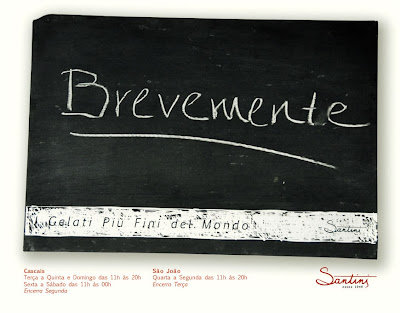 Brevemente
I Gelati Più Fini del Mondo
Santini
Cascais
Terça a Quinta e Domingo das 11h às 20h
Sexta a Sábado das 11h às 00h
Encerra Segunda
São João
Quarta a Segunda das 11h às 20h
Encerra Terça
Santini
desde 1949